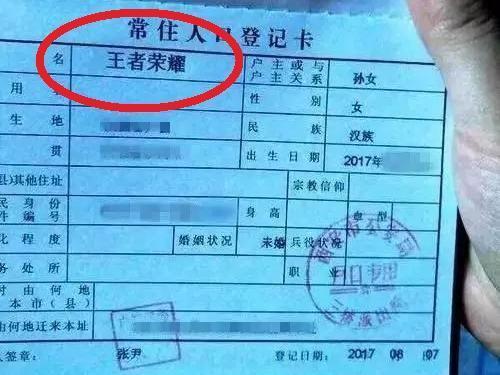 常住人口登记卡
名 王者荣耀 户主或与户主关系 孙女
用 性别 女
生地 民族 汉族
贯 出生日期 2017年
县)其他住址 宗教信仰
民身份件编号 身高 血型
化程度 婚姻状况 未婚 兵役状况
务处所 职业
时由何地本市(县)
由何地迁来本址
人签章: 张尹 登记日期: 2017 06 07
西安市公安局
户口专用
三桥派出所